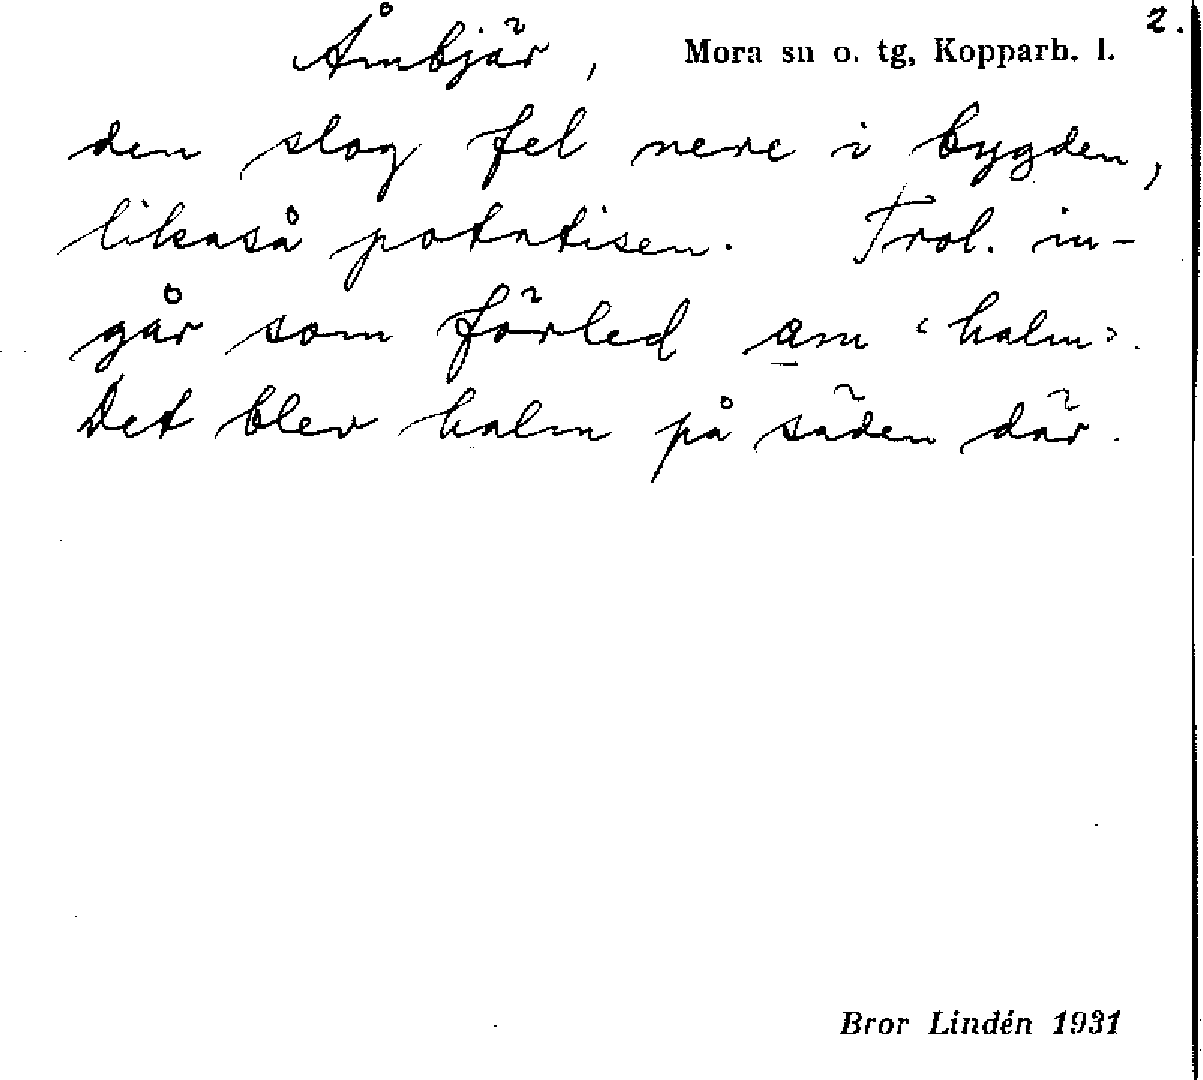 2.
Åmbjär, Mora sn o. tg, Kopparb. l.
den slog fel nere i bygden,
likaså potatisen. Trol. in-
går som förled am ‹halm›.
Det blev halm på säden där.
Bror Lindén 1931